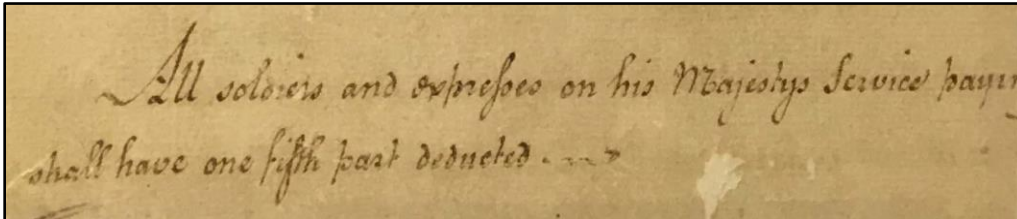 All soldiers and expresses on his Majestys Service
shall have one fifth part deducted